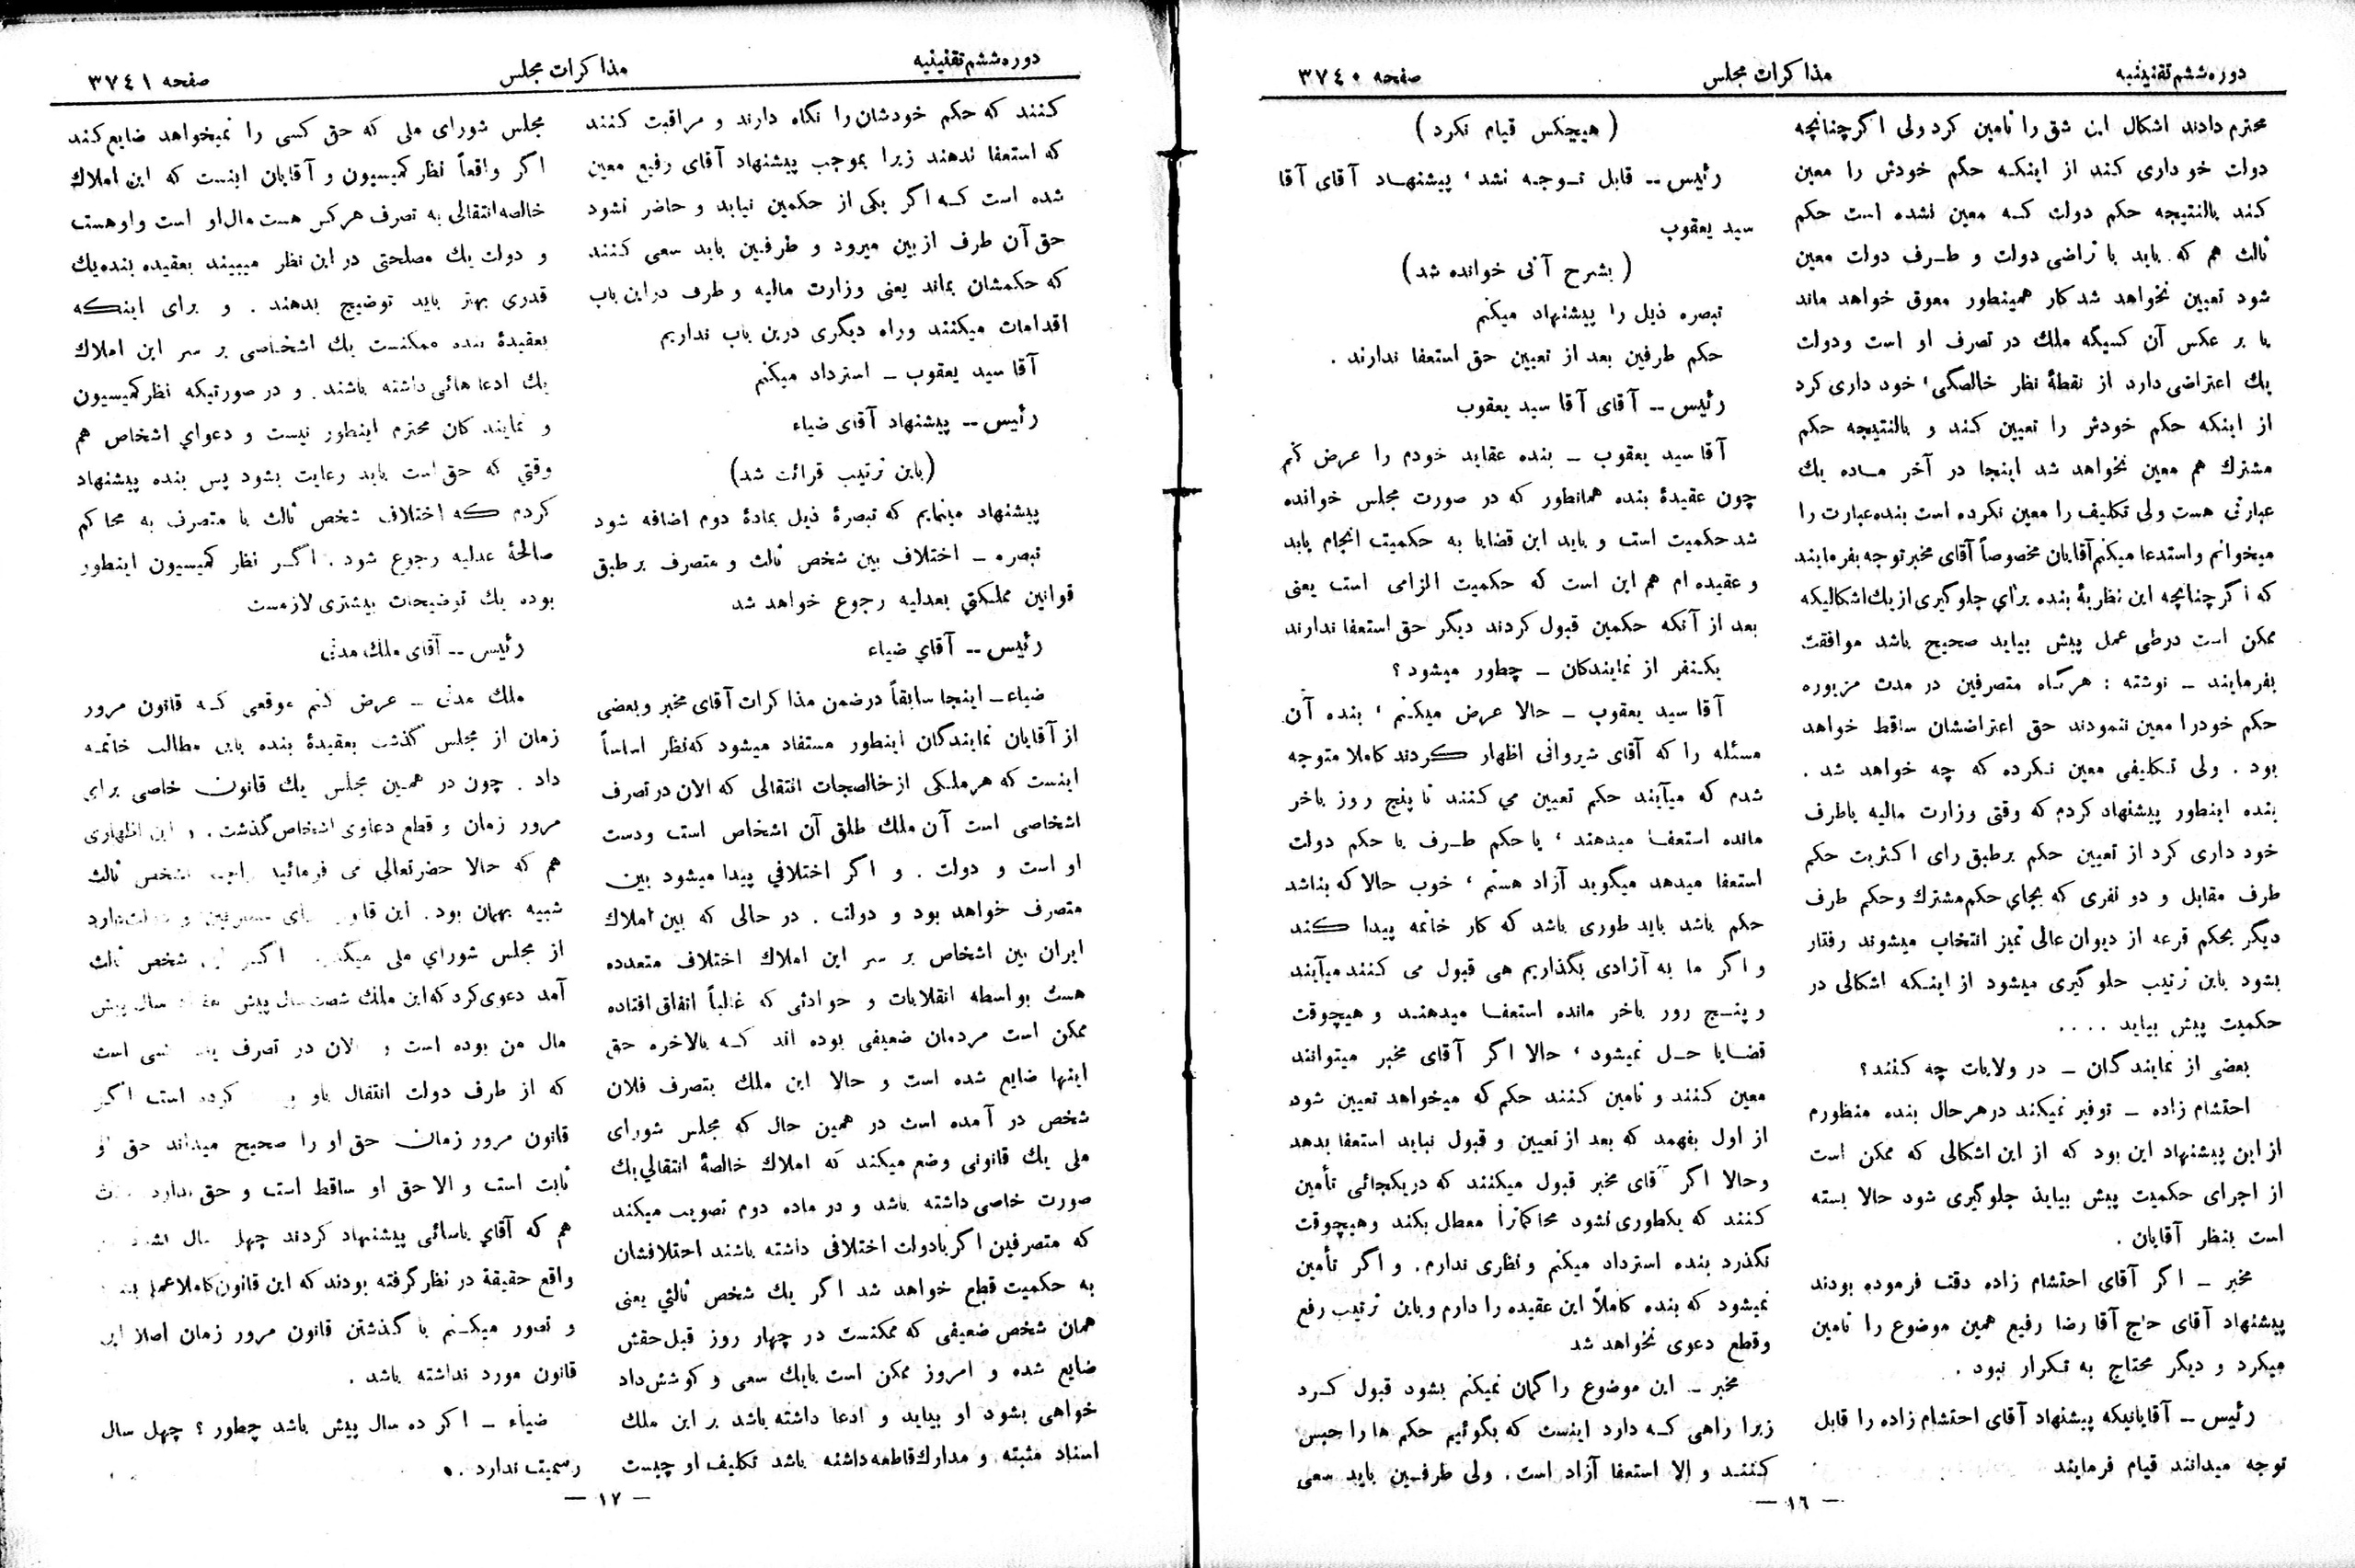 دوره ششم تقنینیه
مذاکرات مجلس
صفحه ۳۷٤۰
محترم دادند اشکال این شق را تامین کرد ولی اگر چنانچه
دولت خودداری کند از اینکه حکم خودش را معین
کند بالنتیجه حکم دولت که معین نشده است حکم
ثالث هم که باید با تراضی دولت و طرف دولت معین
شود تعیین نخواهد شد کار همینطور معوق خواهد ماند
یا بر عکس آن کسیگه ملك در تصرف او است و دولت
یك اعتراضی دارد از نقطهٔ نظر خالصگی، خود داری کرد
از اینکه حکم خودش را تعیین کند و بالنتیجه حکم
مشترك هم معین نخواهد شد اینجا در آخر ماده یك
عبارتی هست ولی تکلیف را معین نکرده است بنده عبارت را
میخوانم و استدعا میکنم آقایان مخصوصاً آقای مخبر توجه بفرمایند
که اگر چنانچه این نظریهٔ بنده برای جلوگیری از یك اشکالیکه
ممکن است در طی عمل پیش بیاید صحیح باشد موافقت
بفرمایند ـ نوشته : هر گاه متصرفین در مدت مزبوره
حکم خود را معین ننمودند حق اعتراضشان ساقط خواهد
بود . ولی تکلیفی معین نکرده که چه خواهد شد .
بنده اینطور پیشنهاد کردم که وقتی وزارت مالیه یا طرف
خود داری کرد از تعیین حکم بر طبق رای اکثریت حکم
طرف مقابل و دو نفری که بجای حکم مشترك و حکم طرف
دیگر بحکم قرعه از دیوان عالی تمیز انتخاب میشوند رفتار
بشود باین ترتیب جلوگیری میشود از اینکه اشکالی در
حکمیت پیش بیاید ....
بعضی از نمایندگان ـ در ولایات چه کنند؟
احتشام زاده ـ توفیر نمیکند در هر حال بنده منظورم
از این پیشنهاد این بود که از این اشکالی که ممکن است
از اجرای حکمیت پیش بیاید جلوگیری شود حالا بسته
است بنظر آقایان .
مخبر ـ اگر آقای احتشام زاده دقت فرموده بودند
پیشنهاد آقای حاج آقا رضا رفیع همین موضوع را تامین
میکرد و دیگر محتاج به تکرار نبود .
رئیس ـ آقایانیکه پیشنهاد آقای احتشام زاده را قابل
توجه میدانند قیام فرمایند
(هیچکس قیام نکرد)
رئیس ـ قابل توجه نشد، پیشنهاد آقای آقا
سید یعقوب
(بشرح آتی خوانده شد)
تبصره ذیل را پیشنهاد میکنم
حکم طرفین بعد از تعیین حق استعفا ندارند .
رئیس ـ آقای آقا سید یعقوب
آقا سید یعقوب ـ بنده عقاید خودم را عرض کنم
چون عقیدهٔ بنده همانطور که در صورت مجلس خوانده
شد حکمیت است و باید این قضایا به حکمیت انجام یابد
و عقیده ام هم این است که حکمیت الزامی است یعنی
بعد از آنکه حکمین قبول کردند دیگر حق استعفا ندارند
یکنفر از نمایندگان ـ چطور میشود؟
آقا سید یعقوب ـ حالا عرض میکنم، بنده آن
مسئله را که آقای شیروانی اظهار کردند کاملا متوجه
شدم که میآیند حکم تعیین می کنند تا پنج روز باخر
مانده استعفا میدهند، یا حکم طرف یا حکم دولت
استعفا میدهد میگوید آزاد هستم، خوب حالا که بناشد
حکم باشد باید طوری باشد که کار خاتمه پیدا کند
و اگر ما به آزادی بگذاریم هی قبول می کنند میآیند
و پنج روز باخر مانده استعفا میدهند و هیچوقت
قضایا حل نمیشود، حالا اگر آقای مخبر میتوانند
معین کنند و تامین کنند حکم که میخواهد تعیین شود
از اول بفهمد که بعد از تعیین و قبول نباید استعفا بدهد
و حالا اگر آقای مخبر قبول میکنند که در یکجائی تأمین
کنند که یکطوری نشود محاکماترا معطل بکند و هیچوقت
نگذرد بنده استرداد میکنم و نظری ندارم. و اگر تأمین
نمیشود که بنده کاملاً این عقیده را دارم و باین ترتیب رفع
و قطع دعوی نخواهد شد
مخبر ـ این موضوع را گمان نمیکنم بشود قبول کرد
زیرا راهی که دارد اینست که بگوئیم حکم ها را حبس
کنند و الا استعفا آزاد است. ولی طرفین باید سعی
— ۱٦ —
دوره ششم تقنینیه
مذاکرات مجلس
صفحه ۳۷٤۱
کنند که حکم خودشان را نگاه دارند و مراقبت کنند
که استعفا ندهند زیرا بموجب پیشنهاد آقای رفیع معین
شده است که اگر یکی از حکمین نیاید و حاضر نشود
حق آن طرف از بین میرود و طرفین باید سعی کنند
که حکمشان بماند یعنی وزارت مالیه و طرف در این باب
اقدامات میکنند و راه دیگری در بن باب نداریم
آقا سید یعقوب ـ استرداد میکنم
رئیس ـ پیشنهاد آقای ضیاء
(باین ترتیب قرائت شد)
پیشنهاد مینمایم که تبصرهٔ ذیل بمادهٔ دوم اضافه شود
تبصره ـ اختلاف بین شخص ثالث و متصرف بر طبق
قوانین مملکتی بعدلیه رجوع خواهد شد
رئیس ـ آقای ضیاء
ضیاء ـ اینجا سابقاً در ضمن مذاکرات آقای مخبر و بعضی
از آقایان نمایندگان اینطور مستفاد میشود که نظر اساساً
اینست که هر ملکی از خالصجات انتقالی که الان در تصرف
اشخاصی است آن ملك طلق آن اشخاص است و دست
او است و دولت . و اگر اختلافی پیدا میشود بین
متصرف خواهد بود و دولت . در حالی که بین املاك
ایران بین اشخاص بر سر این املاك اختلاف متعدده
هست بواسطه انقلابات و حوادثی که غالباً اتفاق افتاده
ممکن است مردمان ضعیفی بوده اند که بالاخره حق
اینها ضایع شده است و حالا این ملك بتصرف فلان
شخص در آمده است در همین حال که مجلس شورای
ملی یك قانونی وضع میکند که املاك خالصهٔ انتقالی یك
صورت خاصی داشته باشد و در ماده دوم تصویب میکند
که متصرفین اگر با دولت اختلافی داشته باشند اختلافشان
به حکمیت قطع خواهد شد اگر یك شخص ثالثی یعنی
همان شخص ضعیفی که ممکنست در چهار روز قبل حقش
ضایع شده و امروز ممکن است بایك سعی و کوشش داد
خواهی بشود او بیاید و ادعا داشته باشد بر این ملك
اسناد مثبته و مدارك قاطعه داشته باشد تکلیف او چیست
مجلس شورای ملی که حق کسی را نمیخواهد ضایع کند
اگر واقعاً نظر کمیسیون و آقایان اینست که این املاك
خالصه انتقالی به تصرف هر کس هست مال او است و او هست
و دولت یك مصلحتی در این نظر میبیند بعقیده بنده یك
قدری بهتر باید توضیح بدهند . و برای اینکه
بعقیدهٔ بنده ممکنست یك اشخاصی بر سر این املاك
یك ادعا هائی داشته باشند. و در صورتیکه نظر کمیسیون
و نمایندگان محترم اینطور نیست و دعوای اشخاص هم
وقتی که حق است باید رعایت بشود پس بنده پیشنهاد
کردم که اختلاف شخص ثالث با متصرف به محاکم
صالحهٔ عدلیه رجوع شود . اگر نظر کمیسیون اینطور
بوده یك توضیحات بیشتری لازمست
رئیس ـ آقای ملك مدنی
ملك مدنی ـ عرض کنم موقعی که قانون مرور
زمان از مجلس گذشت بعقیدهٔ بنده باین مطالب خاتمه
داد . چون در همین مجلس یك قانون خاصی برای
مرور زمان و قطع دعاوی اشخاص گذشت. و این اظهاری
هم که حالا حضرتعالی می فرمائید راجع شخص ثالث
شبیه بهمان بود. این متصرفین و دولت دارد
از مجلس شورای ملی میگذرد اگر شخص ثالث
آمد دعوی کرد که این ملك شصت سال پیش سال پیش
مال من بوده است و الان در تصرف است
که از طرف دولت انتقال باو کرده است اگر
قانون مرور زمان حق او را صحیح میداند حق او
ثابت است و الا حق او ساقط است و حق ندارد
هم که آقای یاسائی پیشنهاد کردند چهل سال
واقع حقیقة در نظر گرفته بودند که این قانون کاملا عملی
و تصور میکنم با گذشتن قانون مرور زمان اصلا این
قانون مورد نداشته باشد .
ضیاء ـ اگر ده سال پیش باشد چطور؟ چهل سال
رسمیت ندارد .
— ۱۷ —